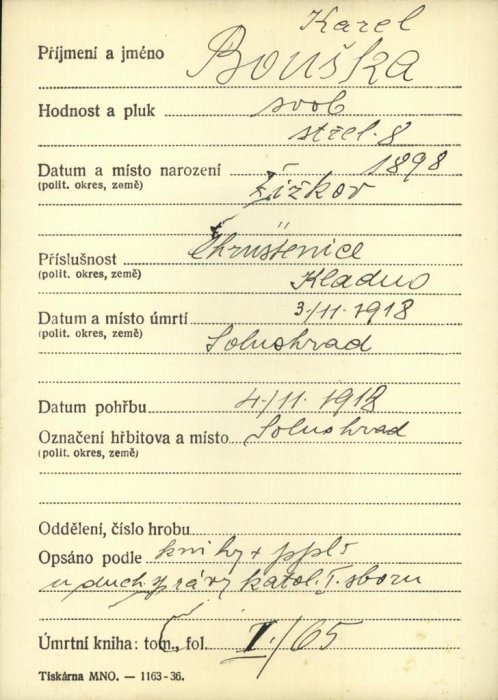 Karel
Příjmení a jméno Bouška
Hodnost a pluk svob
střel. 8
Datum a místo narození 1898
(polit. okres, země) Žižkov
Příslušnost Chrustenice
(polit. okres, země) Kladno
Datum a místo úmrtí 3./11. 1918
(polit. okres, země) Solnohrad
Datum pohřbu 4./11. 1918
Označení hřbitova a místo Solnohrad
(polit. okres, země)
Oddělení, číslo hrobu
Opsáno podle knihy +
u duch. správy katol. I. sboru
Úmrtní kniha: tom., fol. I./65
Tiskárna MNO. — 1163-36.